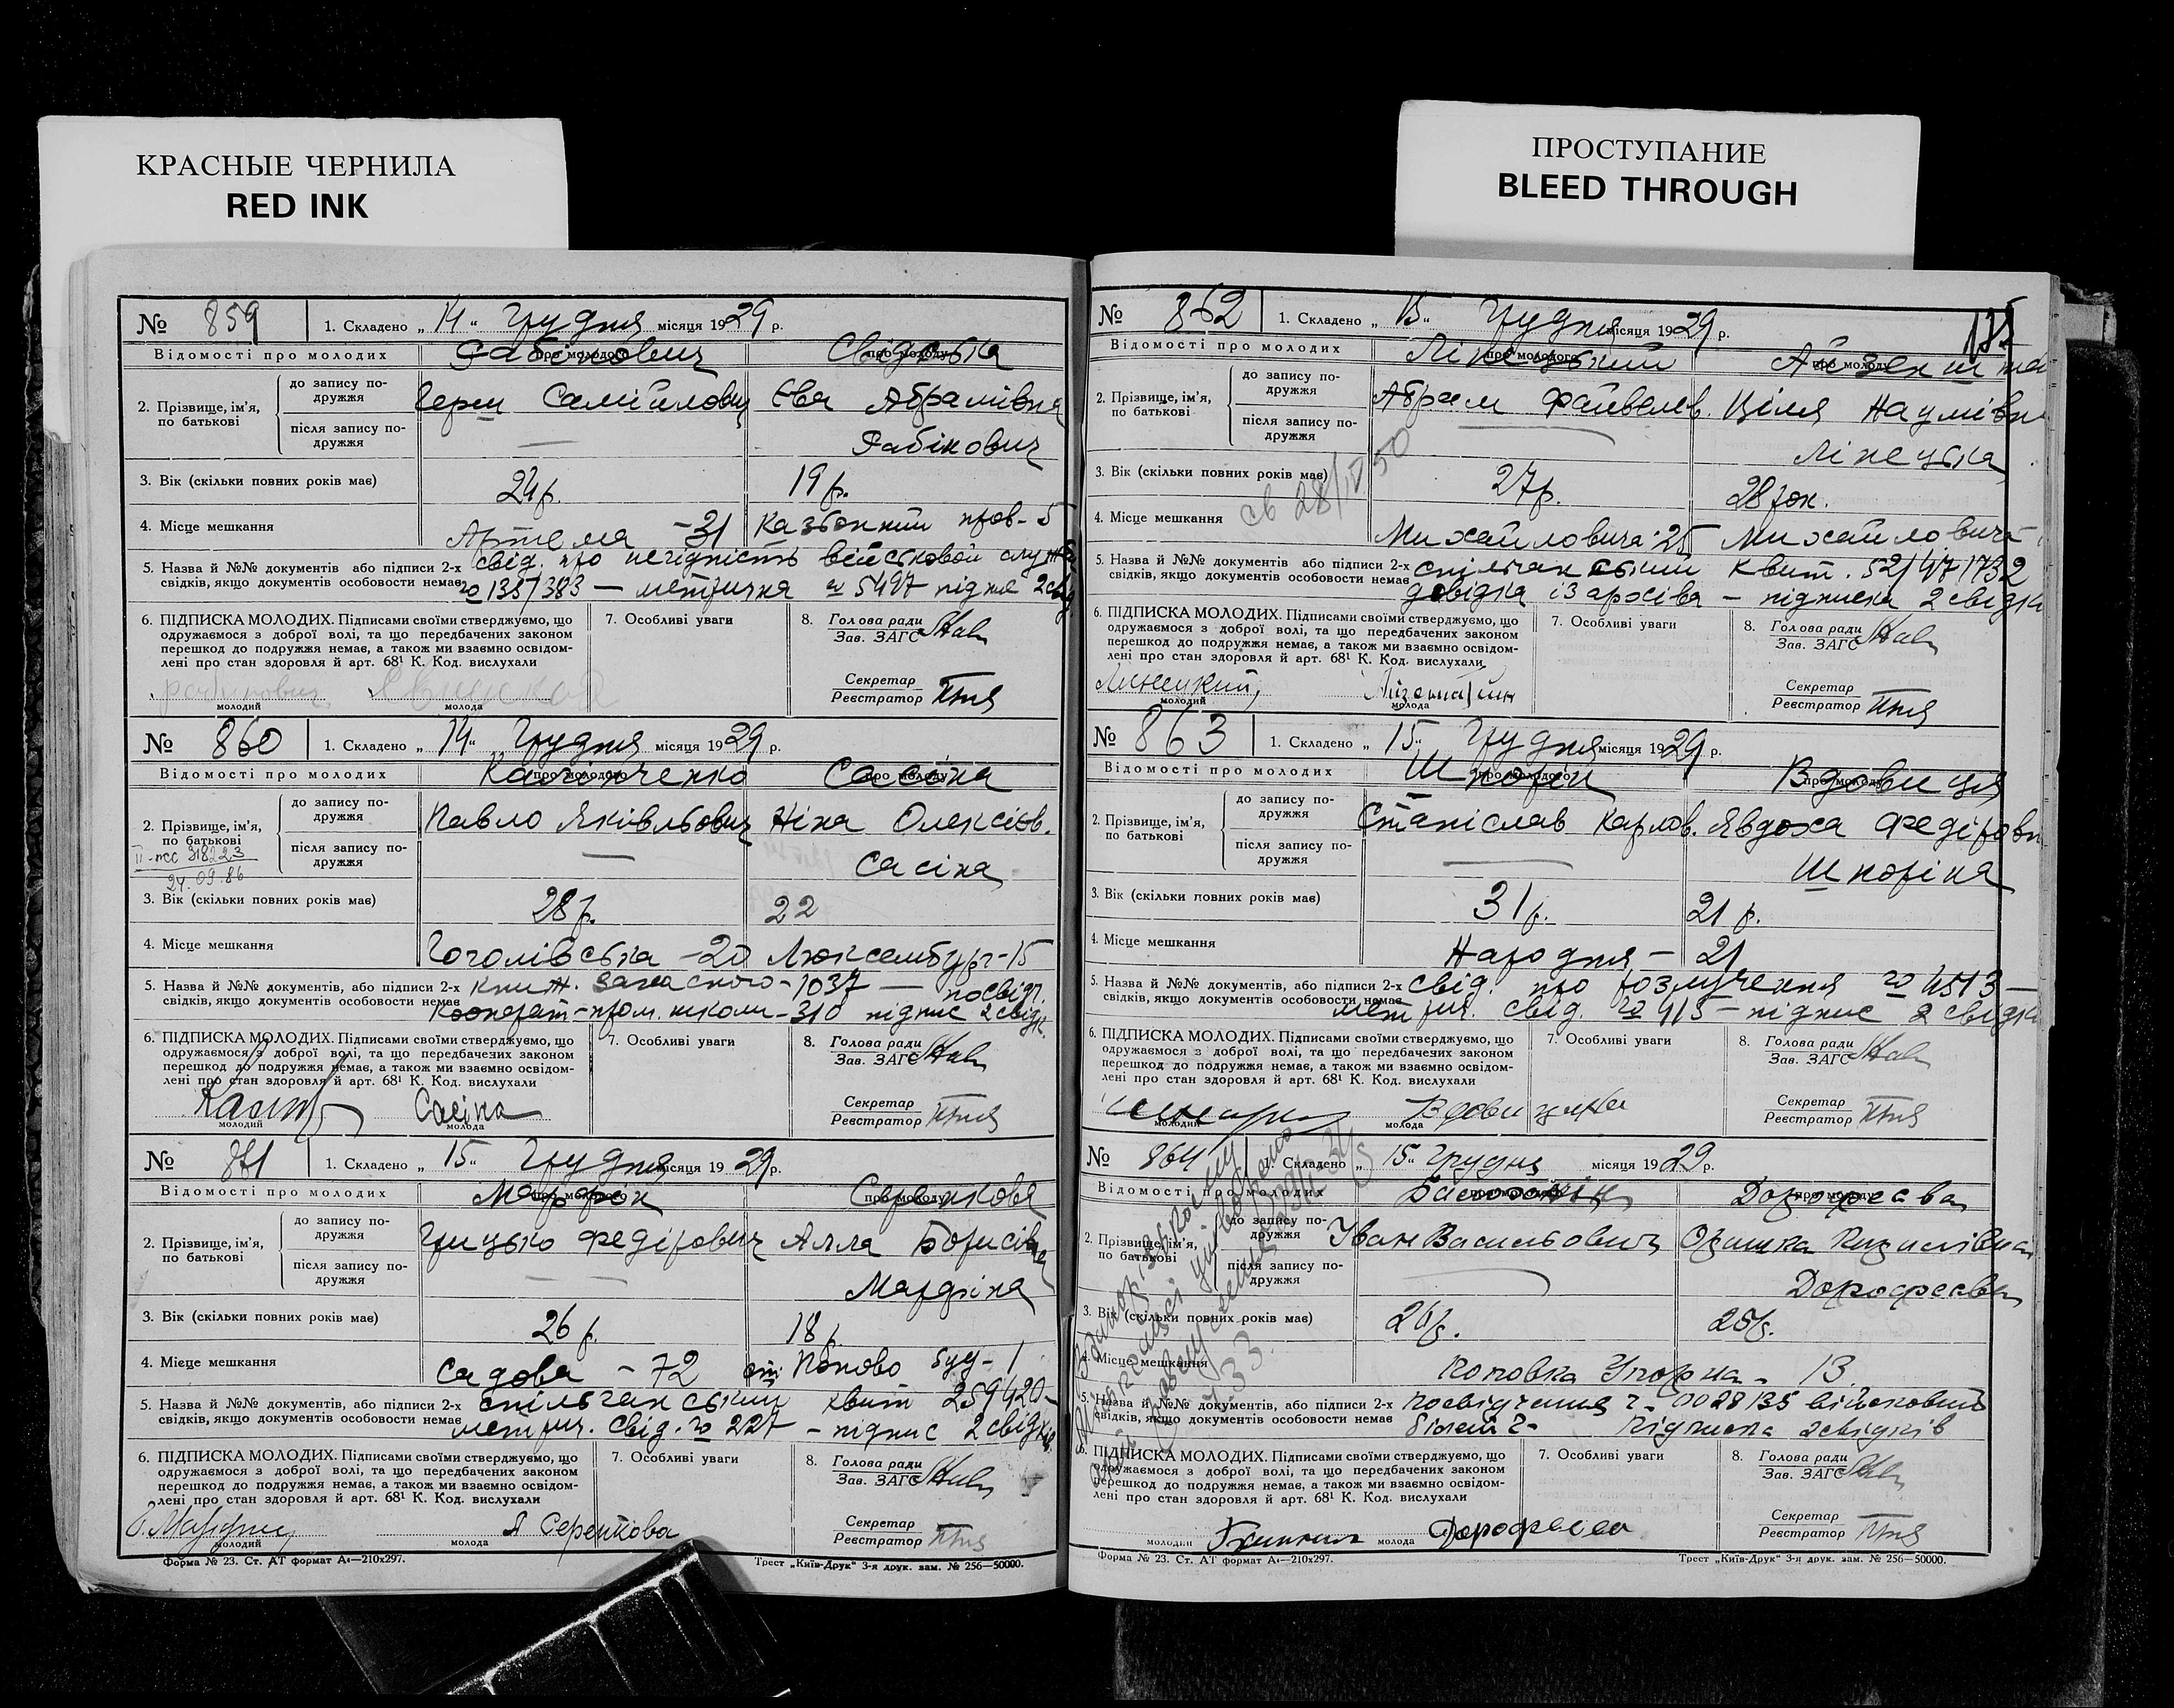 КРАСНЫЕ ЧЕРНИЛА
RED INK
ПРОСТУПАНИЕ
BLEED THROUGH
№ 859 1. Складено „14“ Грудня місяця 1929 р.
Відомості про молодих про молодого про молоду
Рабінович
2. Прізвище, ім'я, по батькові
до запису подружжя Герш Самійлович Єва Абрамівна
після запису подружжя — Рабінович
3. Вік (скільки повних років має) 24 р. 19 р.
4. Місце мешкання Артема - 31 пров - 5
5. Назва й №№ документів або підписи 2-х свід. про негідність військовой служби
свідків, якщо документів особовости немає № 135/383 — метрична № 5497 підпис 2 свід.
6. ПІДПИСКА МОЛОДИХ. Підписами своїми стверджуємо, що
одружаємося з доброї волі, та що передбачених законом
перешкод до подружжя немає, а також ми взаємно освідом-
лені про стан здоровля й арт. 68¹ К. Код. вислухали
7. Особливі уваги
8. Голова ради
Зав. ЗАГС
Секретар
Реєстратор
молодий молода
№ 860 1. Складено „14“ Грудня місяця 1929 р.
Відомості про молодих про молодого про молоду
Сасіна
2. Прізвище, ім'я, по батькові
до запису подружжя Павло Яківльович Ніна Олексіїв.
після запису подружжя — Сасіна
318223
24.09.86
3. Вік (скільки повних років має) 28 р. 22
4. Місце мешкання Гоголівська - 20 Люксембург - 15
5. Назва й №№ документів, або підписи 2-х книж. - 1037 — посвідч.
свідків, якщо документів особовости немає Кооперат - пром. школи - 310 підпис 2 свідк.
6. ПІДПИСКА МОЛОДИХ. Підписами своїми стверджуємо, що
одружаємося з доброї волі, та що передбачених законом
перешкод до подружжя немає, а також ми взаємно освідом-
лені про стан здоровля й арт. 68¹ К. Код. вислухали
7. Особливі уваги
8. Голова ради
Зав. ЗАГС
Секретар
Реєстратор
Сасіна
молодий молода
№ 861 1. Складено „15“ Грудня місяця 1929 р.
Відомості про молодих про молодого про молоду
Серенкова
2. Прізвище, ім'я, по батькові
до запису подружжя Грицько Федірович Алла Борисівна
після запису подружжя — —
3. Вік (скільки повних років має) 26 р. 18 р.
4. Місце мешкання Садова - 72 ст. Попово буд - 1
5. Назва й №№ документів, або підписи 2-х спільчанський квит 259420 -
свідків, якщо документів особовости немає метрич. свід. № 227 - підпис 2 свідків.
6. ПІДПИСКА МОЛОДИХ. Підписами своїми стверджуємо, що
одружаємося з доброї волі, та що передбачених законом
перешкод до подружжя немає, а також ми взаємно освідом-
лені про стан здоровля й арт. 68¹ К. Код. вислухали
7. Особливі уваги
8. Голова ради
Зав. ЗАГС
Секретар
Реєстратор
А Серенкова
молодий молода
Форма № 23. Ст. АТ формат А4—210х297. Трест „Київ-Друк“ 3-я друк. зам. № 256—50000.
№ 862 1. Складено „15“ Грудня місяця 1929 р.
Відомості про молодих про молодого про молоду
Лінецький
2. Прізвище, ім'я, по батькові
до запису подружжя Абрам Файвелев. Ціля Наумівна
після запису подружжя — Лінецька
3. Вік (скільки повних років має) 27 р. 28 рок.
св 28/IV 50
4. Місце мешкання Михайловича - 25 Михайловича
5. Назва й №№ документів або підписи 2-х спільчанський квит. 52/471732
свідків, якщо документів особовости немає довідка із архіва — підписка 2 свідки
6. ПІДПИСКА МОЛОДИХ. Підписами своїми стверджуємо, що
одружаємося з доброї волі, та що передбачених законом
перешкод до подружжя немає, а також ми взаємно освідом-
лені про стан здоровля й арт. 68¹ К. Код. вислухали
7. Особливі уваги
8. Голова ради
Зав. ЗАГС
Секретар
Реєстратор
Линецкий
молодий молода
№ 863 1. Складено „15“ Грудня місяця 1929 р.
Відомості про молодих про молодого про молоду
Вдовиця
2. Прізвище, ім'я, по батькові
до запису подружжя Станіслав Карлов. Явдоха Федіровн
після запису подружжя —
3. Вік (скільки повних років має) 31 р. 21 р.
4. Місце мешкання Народня - 21
5. Назва й №№ документів, або підписи 2-х свід. про розлучення № 4513 —
свідків, якщо документів особовости немає метрич. свід. № 415 — підпис 2 свідки
6. ПІДПИСКА МОЛОДИХ. Підписами своїми стверджуємо, що
одружаємося з доброї волі, та що передбачених законом
перешкод до подружжя немає, а також ми взаємно освідом-
лені про стан здоровля й арт. 68¹ К. Код. вислухали
7. Особливі уваги
8. Голова ради
Зав. ЗАГС
Секретар
Реєстратор
молодий молода
№ 864 1. Складено „15“ Грудня місяця 1929 р.
Відомості про молодих про молодого про молоду
Дорофеєва
2. Прізвище, ім'я, по батькові
до запису подружжя Іван Васильович Оришка Кирилівна
після запису подружжя — Дорофеєва
3. Вік (скільки повних років має) 26 р. 25 р.
4. Місце мешкання - 13
5. Назва й №№ документів, або підписи 2-х Посвідчення ч. 0028135 військовий
свідків, якщо документів особовости немає білет ч - підписка 2 свідків
6. ПІДПИСКА МОЛОДИХ. Підписами своїми стверджуємо, що
одружаємося з доброї волі, та що передбачених законом
перешкод до подружжя немає, а також ми взаємно освідом-
лені про стан здоровля й арт. 68¹ К. Код. вислухали
7. Особливі уваги
8. Голова ради
Зав. ЗАГС
Секретар
Реєстратор
Дорофеева
молодий молода
Форма № 23. Ст. АТ формат А4—210х297. Трест „Київ-Друк“ 3-я друк. зам. № 256—50000.